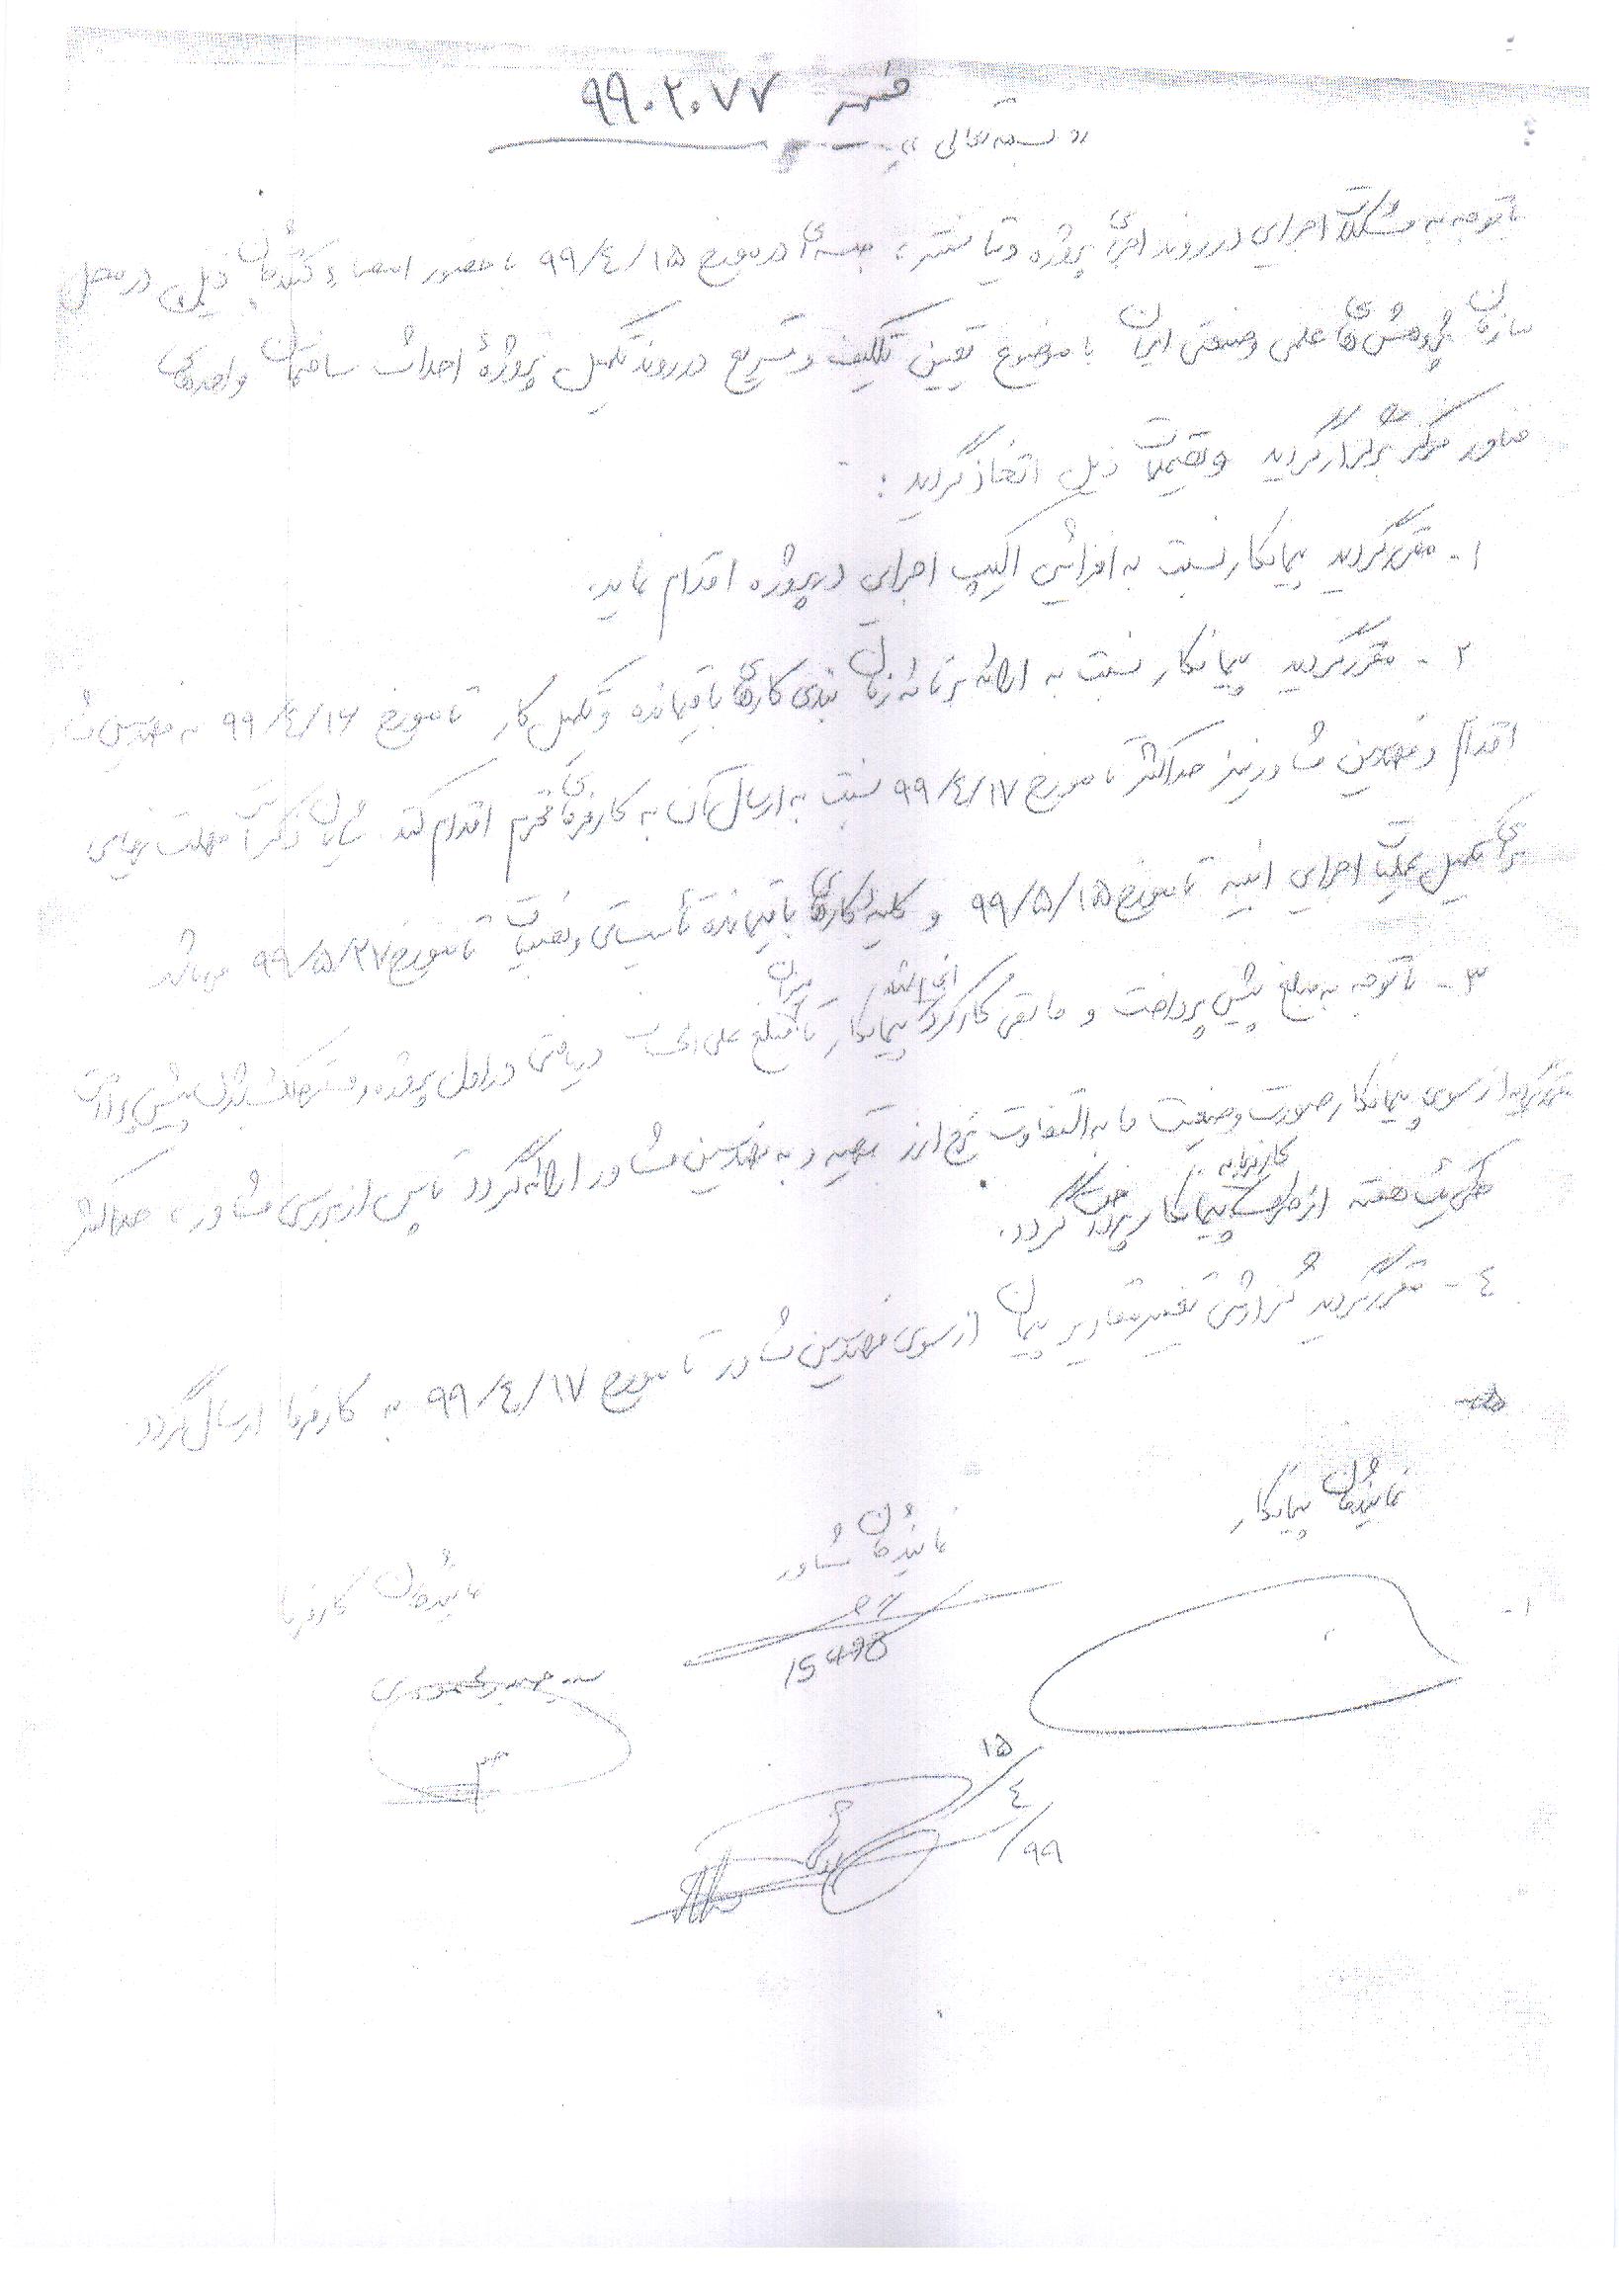 ضمیمه ۹۹.۲.۷۷
"بسمه تعالی"
باتوجه به مشکلات اجرایی در روند اجرای پروژه جلسه‌ای در مورخ ۹۹/۴/۱۵ با حضور امضاء کنندگان ذیل در محل
سازمان پژوهش‌های علمی و صنعتی ایران با موضوع تعیین تکلیف و تسریع در روند تکمیل پروژهٔ احداث ساختمان واحدهای
فناور مرکز برگزار گردید و تصمیمات ذیل اتخاذ گردید:
۱- مقرر گردید پیمانکار نسبت به افزایش اکیپ اجرایی در پروژه اقدام نماید.
۲- مقرر گردید پیمانکار نسبت به ارائه برنامه زمان بندی کارهای باقیمانده و تکمیل کار تا مورخ ۹۹/۴/۱۶ به مهندسین مشاور
اقدام و مهندسین مشاور نیز حداکثر تا مورخ ۹۹/۴/۱۷ نسبت به ارسال آن به کارفرمای محترم اقدام کند. شایان ذکر است مهلت نهایی
برای تکمیل عملیات اجرایی ابنیه تا مورخ ۹۹/۵/۱۵ و کلیه کارهای باقیمانده تأسیساتی و تجهیزات تا مورخ ۹۹/۵/۲۷ می‌باشد
۳- باتوجه به مبلغ پیش پرداخت و مابقی کارکرد پیمانکار تا میزان مبلغ علی الحساب دریافتی در اول پروژه و مستهلک شدن پیش پرداخت
مقرر گردید از سوی پیمانکار صورت وضعیت مابه التفاوت نرخ ارز تهیه و به مهندسین مشاور ارائه گردد تا پس از بررسی مشاور، حداکثر
یک هفته از طرف کارفرما به پیمانکار پرداخت گردد.
۴- مقرر گردید گزارش تغییر مقادیر پیمان از سوی مهندسین مشاور تا مورخ ۹۹/۴/۱۷ به کارفرما ارسال گردد.
نمایندگان پیمانکار
نمایندگان مشاور
نمایندگان کارفرما
۱-
15498
۱۵/۴/۹۹